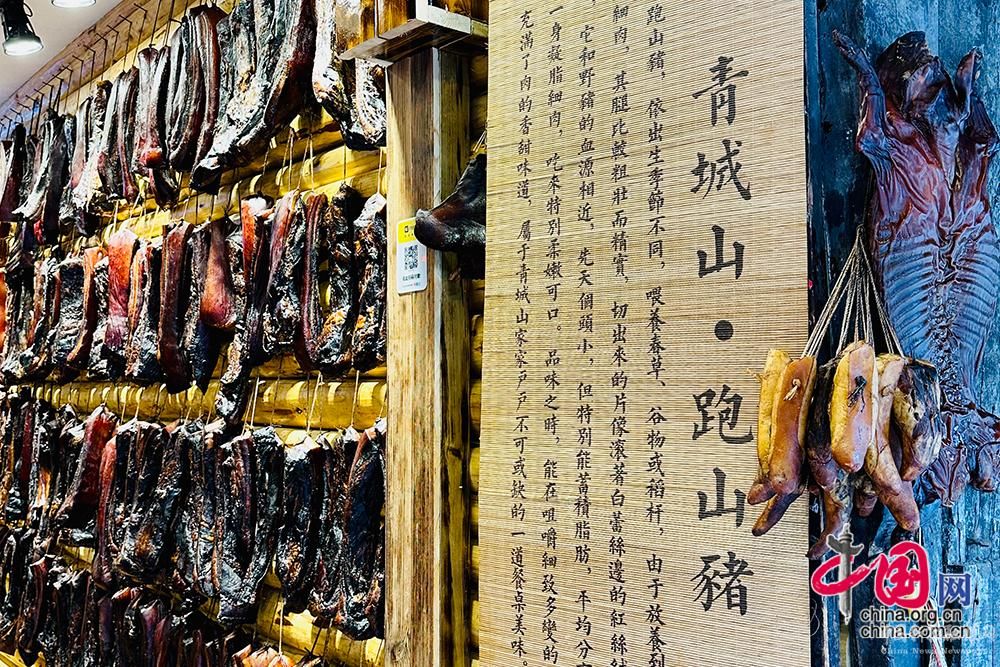 青城山·跑山豬
跑山豬，依出生季節不同，喂養春草、谷物或稻杆，由于放養到
細肉，其腿比較粗壯而精實，切出來的片像滚著白蕾絲邊的紅絲
，它和野豬的血源相近，先天個頭小，但特别能蓄積脂肪，平均分
一身凝脂細肉，吃來特别柔嫩可口。品味之時，能在咀嚼細致多變的
充滿了肉的香甜味道，屬于青城山家家戶戶不可或缺的一道餐桌美味
中国网
china.org.cn
china.com.cn